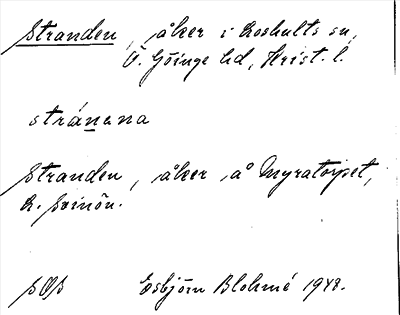 Stranden, åker i Loshults sn,
Ö. Göinge hd, Krist. l.
stránena
Stranden, åker å Myratorpet,
Esbjörn Blohmé 1948.